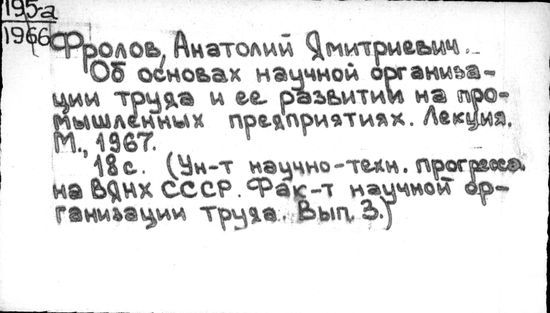 195-а
1966
Фролов, Анатолий Дмитриевич.
Об основах научной организа-
ции труда и ее развитии на про-
мышленных предприятиях. Лекция.
М., 1967.
18 с. (Ун-т научно-техн. прогресса
на ВДНХ СССР. Фак-т научной ор-
ганизации труда. Вып. 3.)